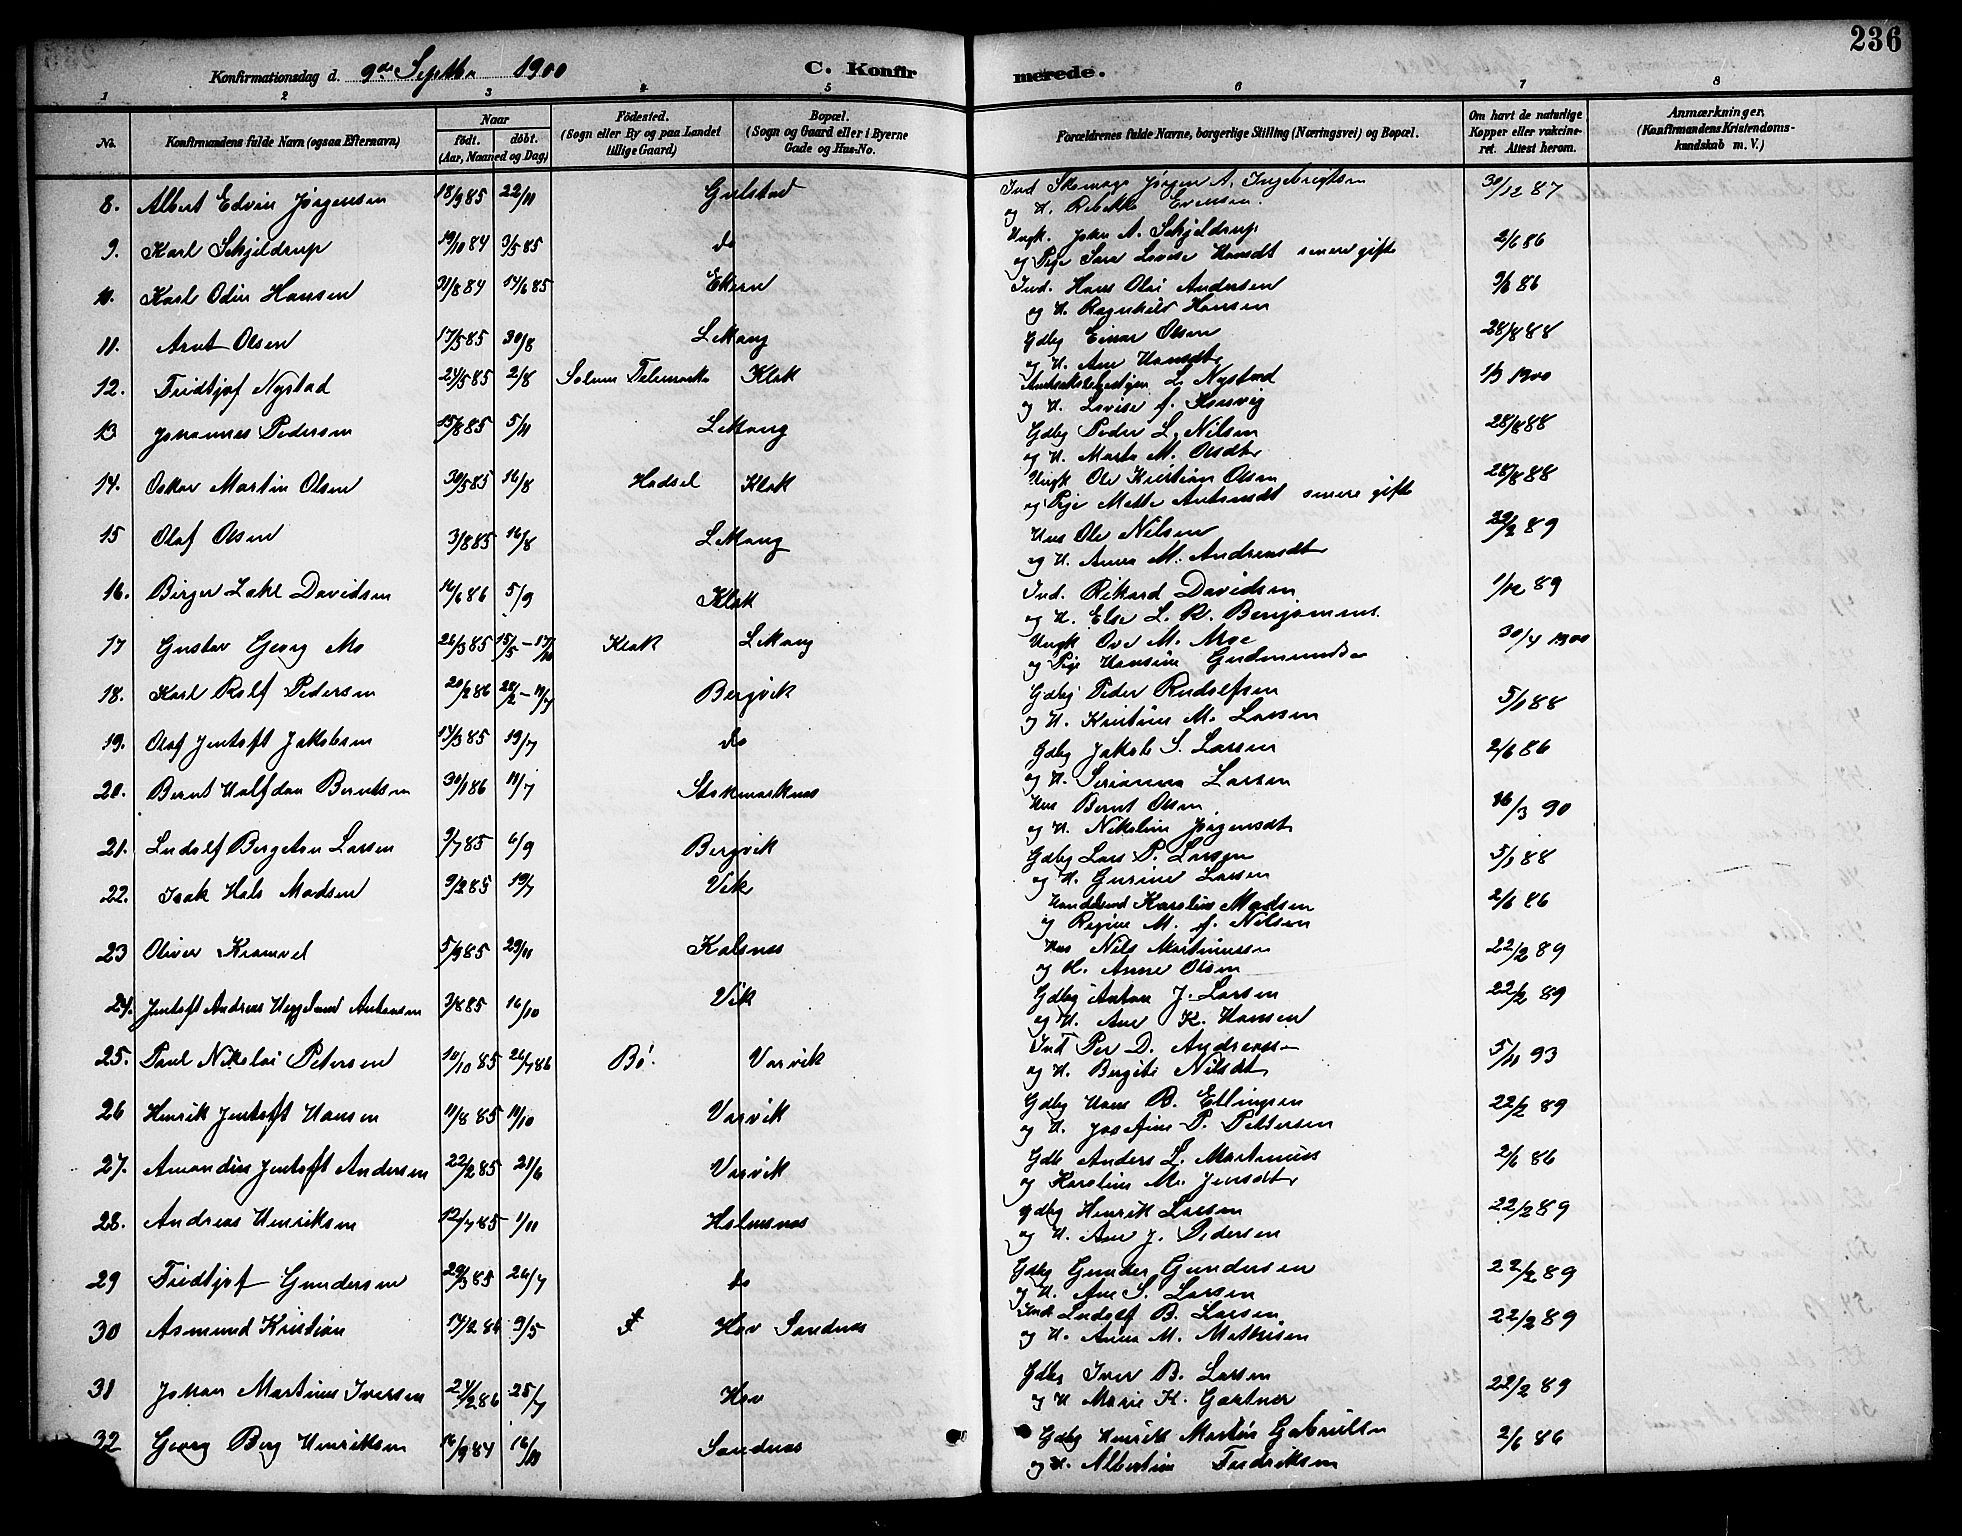 236
Konfirmationsdag d. 9de Septbr 1900 C. Konfirmerede.
1 2 3 4 5 6 7 8
No. Konfirmandens fulde Navn (ogsaa Efternavn) Naar født. døbt. (Aar, Maaned og Dag) Födested. (Sogn eller By og paa Landet tillige Gaard) Bopæl. (Sogn og Gaard eller i Byerne Gade og Hus-No. Forældrenes fulde Navne, borgerlige Stilling (Næringsvei) og Bopæl. Om havt de naturlige Kopper eller vakcineret. Attest herom. Anmærkninger, (Konfirmandens Kristendomskundskab m. V.)
8. Albert Edvin Jørgensen 18/9 85 22/11 Gulstad Ind Skomager Jørgen A. Ingebrigtsen 30/12 87
og H. Rebekka Evensen
9. Karl Schjeldrup 19/10 84 3/5 85 do Ungk. Johan A. Schjeldrup 2/6 86
og Pige Sara Lovise Hansdt senere gifte
10. Karl Odin Hansen 31/8 84 14/6 85 Ekren Ind. Hans Olai Andersen 3/6 86
og H. Ragnhild Hansen
11. Arnt Olsen 17/5 85 30/8 Lekang Gdbg Einar Olsen 28/8 88
og H. Ane Hansdt
12. Fridtjof Nystad 24/5 85 2/8 Solum Telemarken Klak L. Nystad 1900
og H. Lovise f.
13 Johannes Pedersen 15/8 85 5/11 Lekang Gdbg Peder L. Nilsen 28/8 88
og H. Marta M. Olsdt
14. Oskar Martin Olsen 30/5 85 16/8 Hadsel Klak Ungk Ole Kristian Olsen 28/8 88
og Pige Mette Antonsdt senere gifte
15 Olaf Olsen 3/8 85 16/8 Lekang Hus Ole Nilsen 22/2 89
og H. Anna M. Andreasdt
16. Birger Davidsen 16/6 86 5/9 Klak Ind. Rikard Davidsen 1/12 89
og H. Else L. K. Benjamins.
17 Gustav Georg Mo 26/3 85 15/5 - 17/10 Klak Lekang Ungk Ove M. Moe 30/4 1900
og Pige Hansine Gudmundsen
18. Karl Rolf Pedersen 20/2 86 28/2 - 11/7 Bergvik Gdbg Peder Rudolfsen 5/1 88
og H. Kristine M. Larsen
19. Olaf Jentoft Jakobsen 14/3 85 19/7 do Gdbg Jakob S. Larsen 2/6 86
og H. Serianna Larsen
20. Bernt Halfdan Berntsen 30/1 86 11/7 Stokmarknes Hus Bernt Olsen 16/3 90
og H. Nikoline Jørgensdt
21. Ludolf Bergeton Larsen 9/7 85 6/9 Bergvik Gdbg Lars P. Larsen 5/1 88
og H. Gurine Larsen
22. Isak Hals Madsen 9/2 85 19/7 Vik Karolius Madsen 2/6 86
og Regine M. f. Nilsen
23 Oliver Kramvel 5/9 85 29/11 Kalsnes Hus Nils Martinussen 22/2 89
og H. Anne Olsen
24. Jentoft Andreas Heggelund Antonsen 3/8 85 16/10 Vik Gdbg Anton J. Larsen 22/2 89
og H. Ane K. Hansen
25. Paul Nikolai Petersen 10/10 85 26/7 86 Bø. Varvik Ind Per D. Andreassen 5/10 93
og H. Bergite Nilsdt
26 Henrik Jentoft Hansen 11/8 85 11/10 Varvik Gdbg Hans B. Ellingsen 22/2 89
og H. Josefine P. Pettersen
27. Amandus Jentoft Andersen 22/2 85 21/6 Varvik Gdb Anders L. Martinus 2/6 86
og Karoline M. Jensdt
28. Andreas Henriksen 12/7 85 1/11 Holmsnes gdbg Henrik Larsen 22/2 89
og H. Ane J. Pedersen
29 Fridtjof Gundersen 29/3 85 26/7 do Gdbg Gunder Gundersen 22/2 89
og H. Ane S. Larsen
30 Asmund Kristian 14/2 86 9/5 Hov Sandnes Ind. Ludolf B. Larsen 22/2 89
og H. Anna M. Mathisen
31 Johan Martinus Iversen 24/2 86 25/7 Hov Gdbg Iver B. Larsen 22/2 89
og H Marie K. Gartner
32 Georg Berg Henriksen 16/9 84 16/11 Sandnes Gdbg Henrik Martin Gabrielsen 2/6 86
og H. Albertine Fredriksen